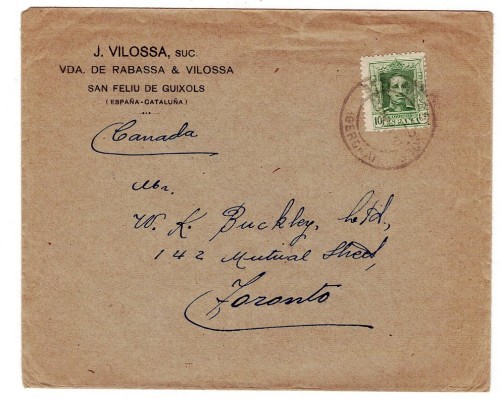 J. VILOSSA, SUC.
VDA. DE RABASSA & VILOSSA
SAN FELIU DE GUIXOLS
(ESPAÑA-CATALUÑA)
Canada
Mr.
W. K. Buckley, Ltd,
142 Mutual Street,
Toronto
10
ESPAÑA